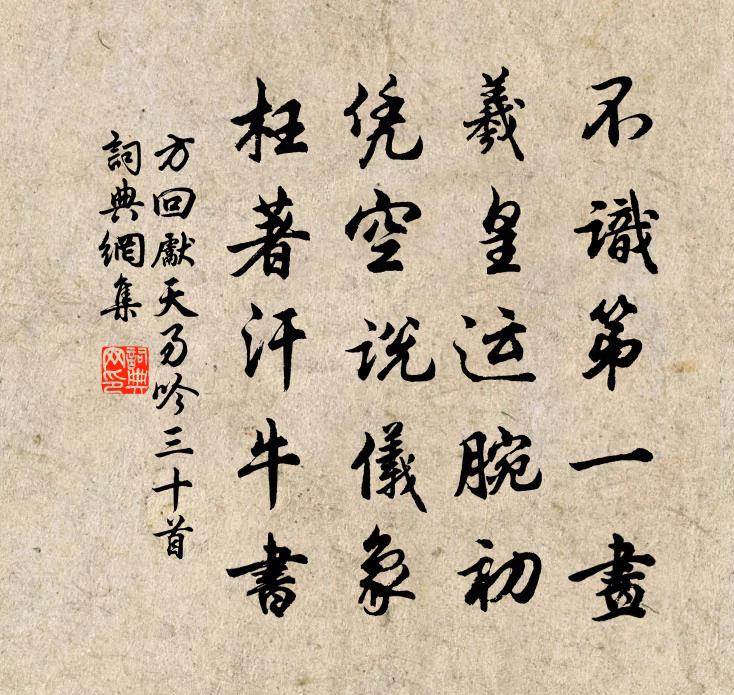 不識第一畫
羲皇运腕初
凭空說儀象
枉著汗牛書
方回獻天易吟三十首
詞典網集
詞典网印